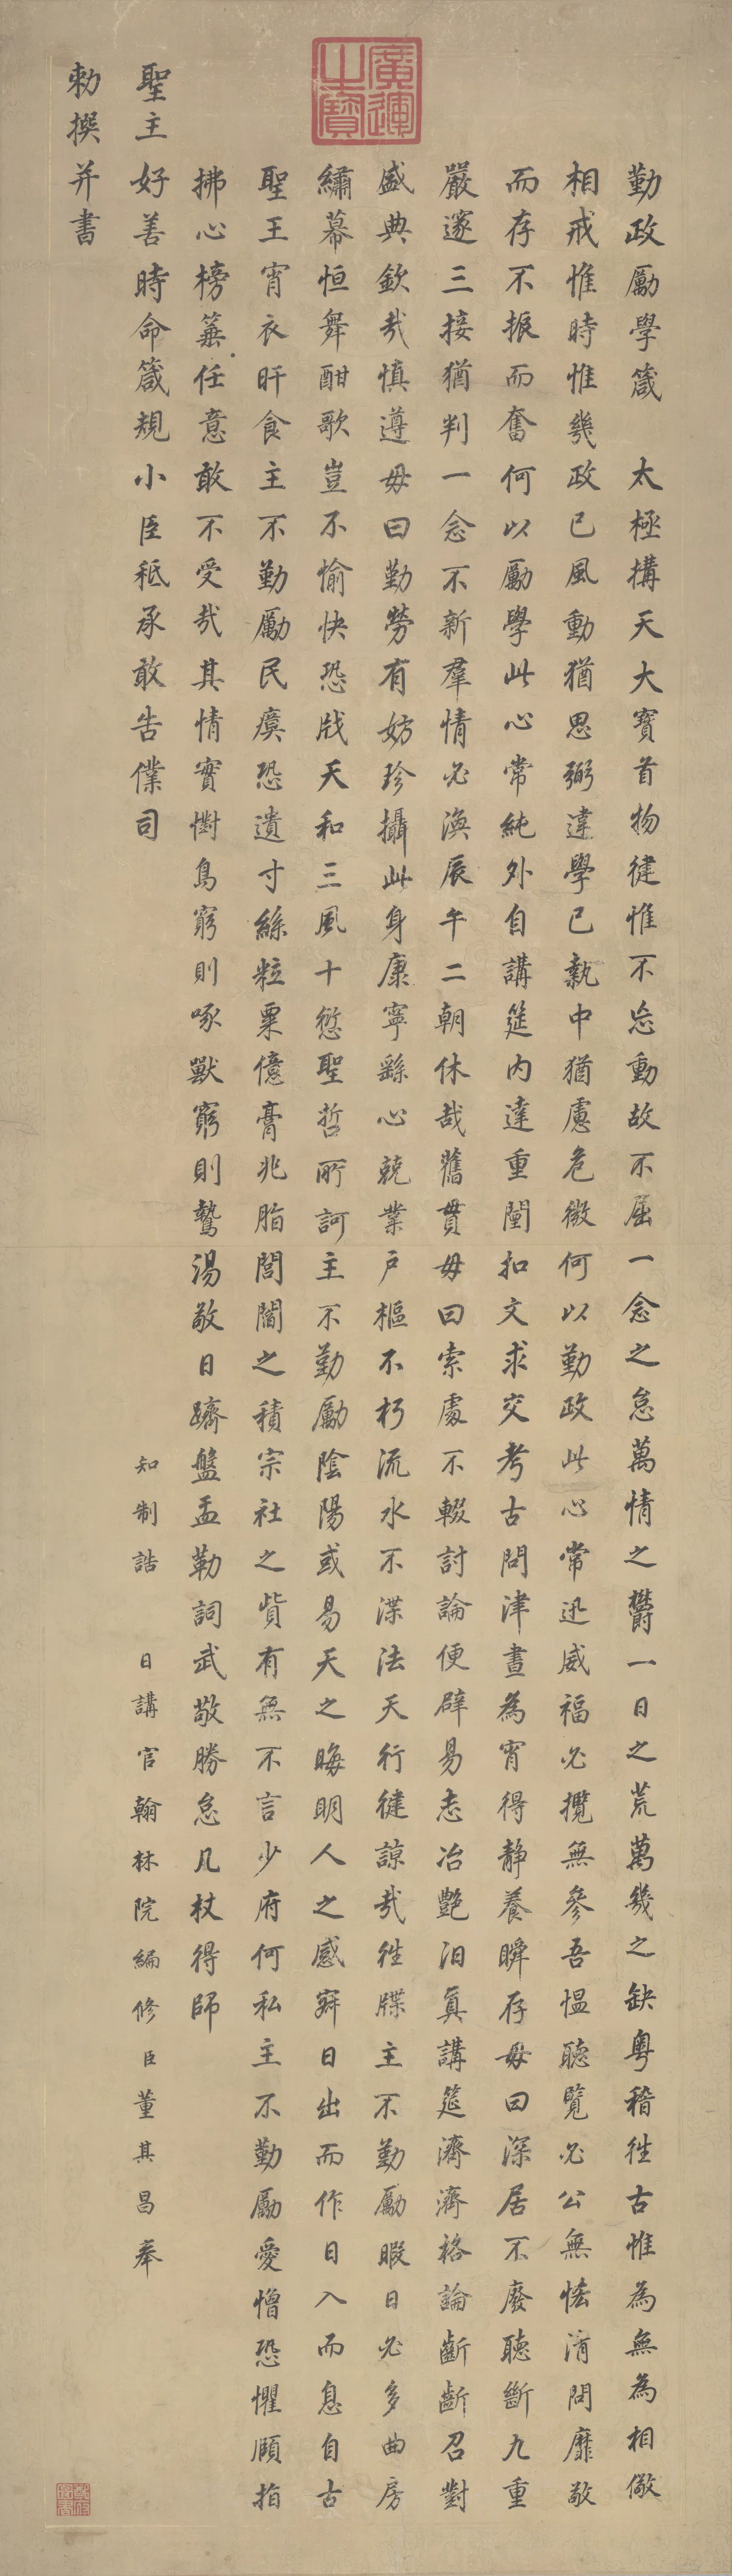 廣運之寶
勤政勵學箴　太極搆天大寶首物健惟不忘動故不屈一念之怠萬情之鬱一日之荒萬幾之缺粵稽往古惟為無為相儆
相戒惟時惟幾政已風動猶思弼違學已執中猶慮危微何以勤政此心常迅威福必攬無參吾慍聽覽必公無恡清問靡敢
而存不振而奮何以勵學此心常純外自講筵內達重闉扣文求交考古問津晝為宵得靜養瞬存毋曰深居不廢聽斷九重
嚴邃三接猶判一念不新羣情必渙辰午二朝休哉舊貫毋曰索處不輟討論便辟易志冶艷汨真講筵濟濟格論齗齗召對
盛典欽哉慎遵毋曰勤勞有妨珍攝此身康寧繇心兢業戶樞不朽流水不渫法天行健諒哉往牒主不勤勵暇日必多曲房
繡幕恒舞酣歌豈不愉快恐戕天和三風十愆聖哲所訶主不勤勵陰陽或易天之晦明人之感寐日出而作日入而息自古
聖王宵衣旰食主不勤勵民瘼恐遺寸絲粒粟億膏兆脂閭閻之積宗社之貲有無不言少府何私主不勤勵愛憎恐懼頤指
拂心榜箠任意敢不受哉其情實懟鳥窮則啄獸窮則鷙湯敬日躋盤盂勒詞武敬勝怠几杖得師
聖主好善時命箴規小臣秪承敢告僕司
知制誥　日講官翰林院編修臣董其昌奉
勑撰并書